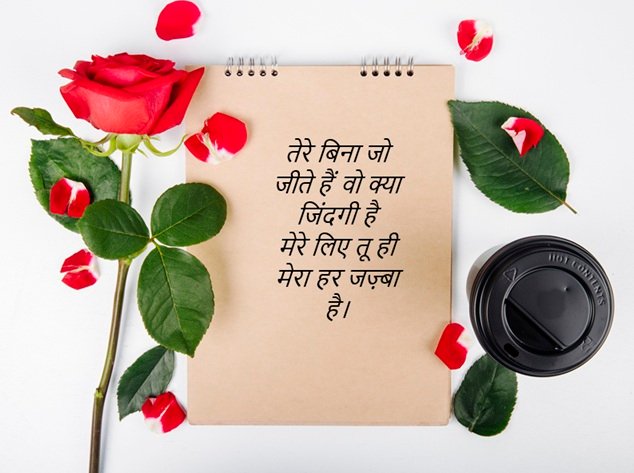 तेरे बिना जो
जीते हैं वो क्या
जिंदगी है
मेरे लिए तू ही
मेरा हर जज़्बा
है।
HOT CONTENTS